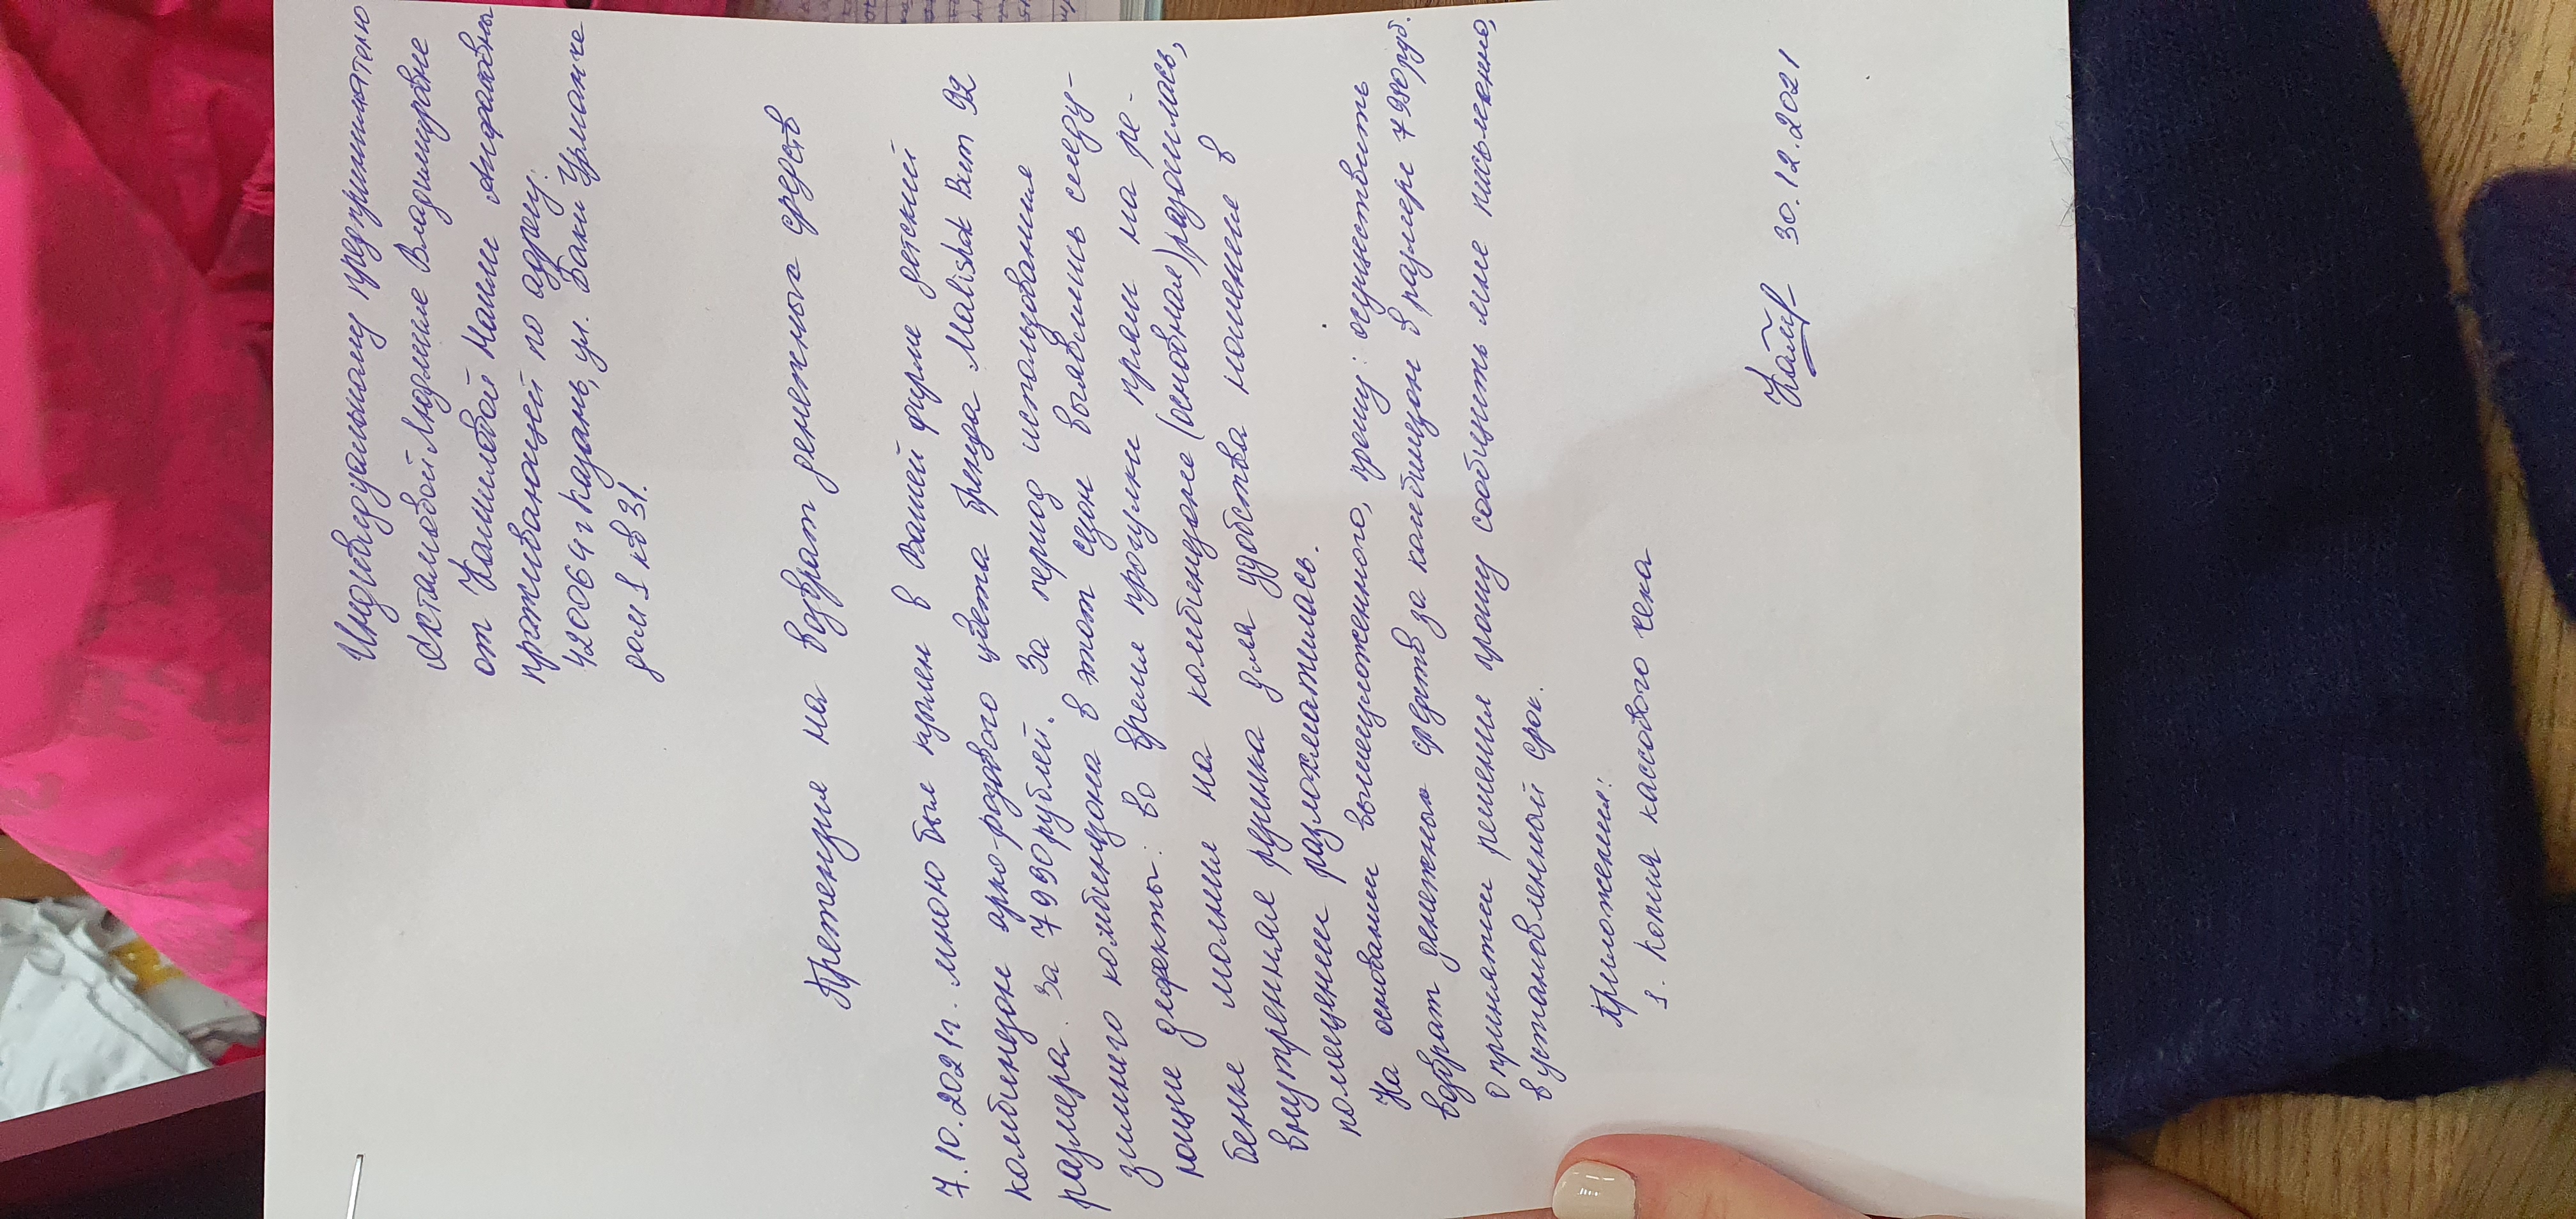 Индивидуальному предпринимателю
Асталовой Людмиле Владимировне
от Камилевой Наили Анфаровны
проживающей по адресу:
420064 г Казань, ул. Баки Урманче
дом 1 кв 31.
Претензия на возврат денежных средств
7.10.2021г. мною был куплен в Вашей фирме детский
комбинезон ярко-розового цвета бренда Malishok Вит 92
размера. за 7990 рублей. За период использования
зимнего комбинезона в этот сезон выявились следу-
ющие дефекты: во время прогулки прям на ре-
бенке молния на комбинезоне (основная) разошлась,
внутренняя резинка для удобства ношения в
помещении разлохматилась.
На основании вышеизложенного, прошу: осуществить
возврат денежных средств за комбинезон в размере 7990 руб.
О принятии решения прошу сообщить мне письменно,
в установленный срок.
Приложения:
1. Копия кассового чека
30.12.2021